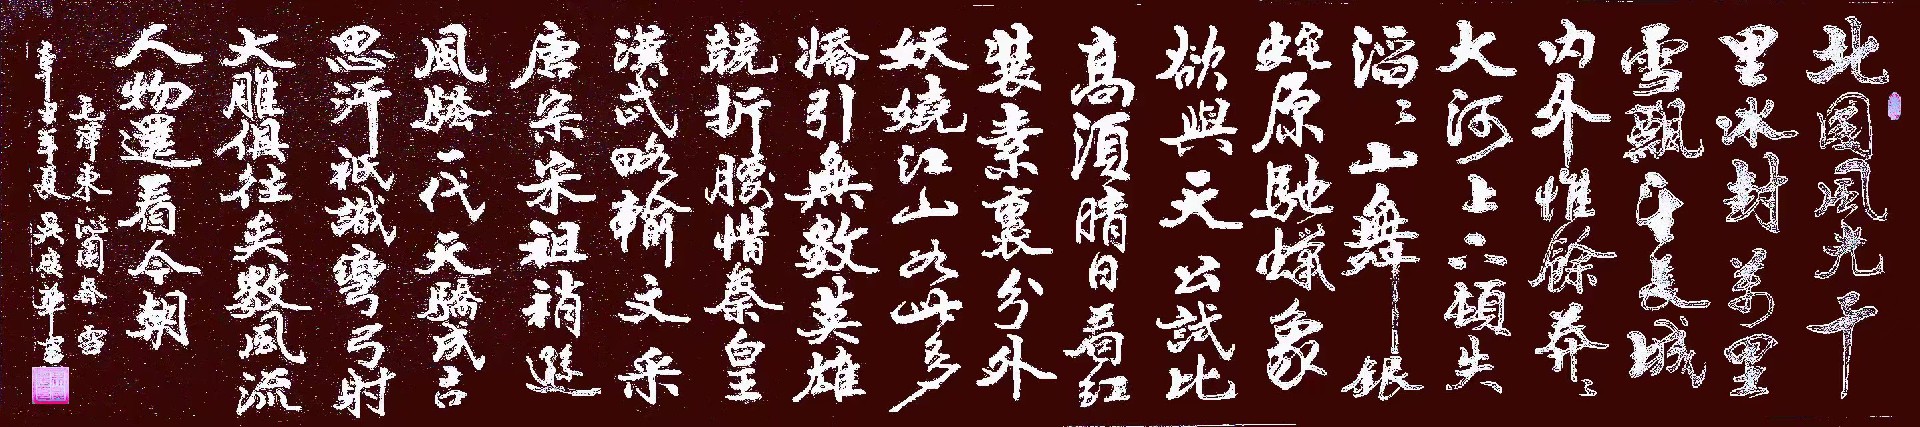 北國風光千
里冰封萬里
雪飄望長城
內外惟餘莽〻
大河上下頓失
滔〻山舞銀
蛇原馳蠟象
欲與天公試比
高須晴日看紅
裝素裹分外
妖嬈江山如此多
嬌引無數英雄
競折腰惜秦皇
漢武略輸文采
唐宗宋祖稍遜
風騷一代天驕成吉
思汗祇識彎弓射
大雕俱往矣數風流
人物還看今朝
毛澤東沁園春雪
年夏吳慶華書